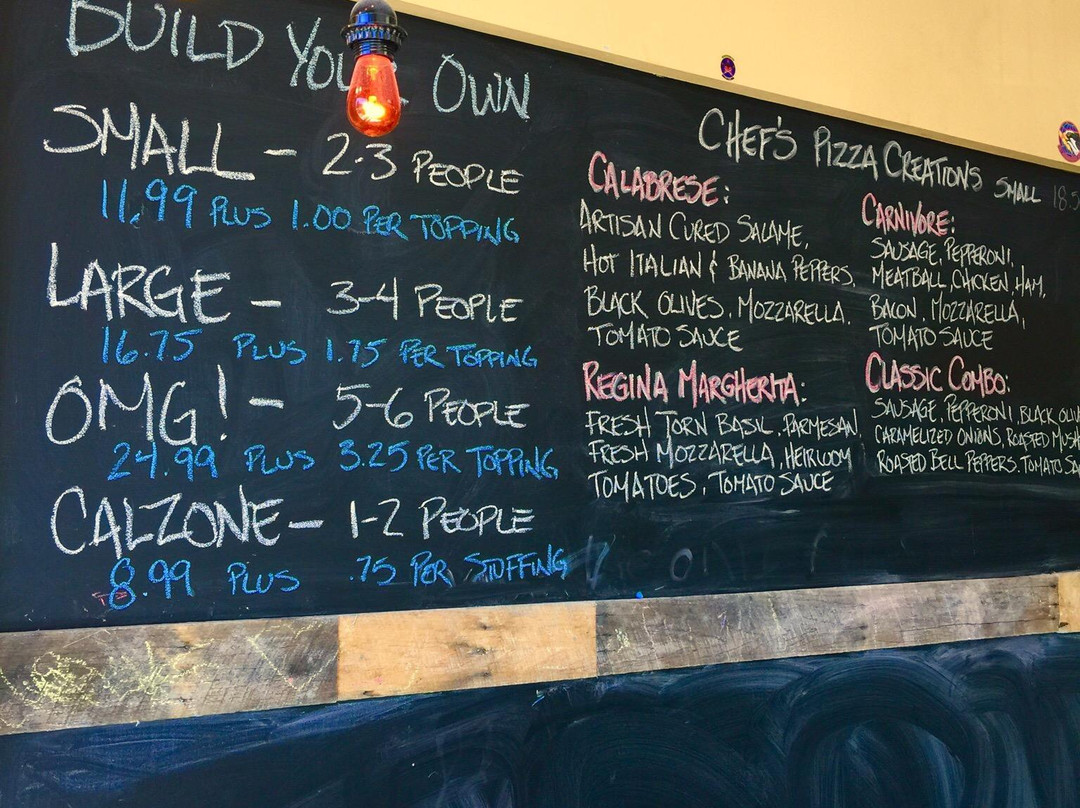 BUILD YOUR OWN
SMALL - 2-3 PEOPLE
11.99 PLUS 1.00 PER TOPPING
LARGE - 3-4 PEOPLE
16.75 PLUS 1.75 PER TOPPING
OMG! - 5-6 PEOPLE
24.99 PLUS 3.25 PER TOPPING
CALZONE - 1-2 PEOPLE
8.99 PLUS .75 PER STUFFING
CHEF'S PIZZA CREATIONS SMALL
CALABRESE:
ARTISAN CURED SALAME,
HOT ITALIAN & BANANA PEPPERS,
BLACK OLIVES, MOZZARELLA,
TOMATO SAUCE
REGINA MARGHERITA:
FRESH TORN BASIL, PARMESAN
FRESH MOZZARELLA, HEIRLOOM
TOMATOES, TOMATO SAUCE
CARNIVORE:
SAUSAGE, PEPPERONI,
MEATBALL, CHICKEN, HAM,
BACON, MOZZARELLA,
TOMATO SAUCE
CLASSIC COMBO:
SAUSAGE, PEPPERONI, BLACK
CARAMELIZED ONIONS, ROASTED
ROASTED BELL PEPPERS, TOMATO